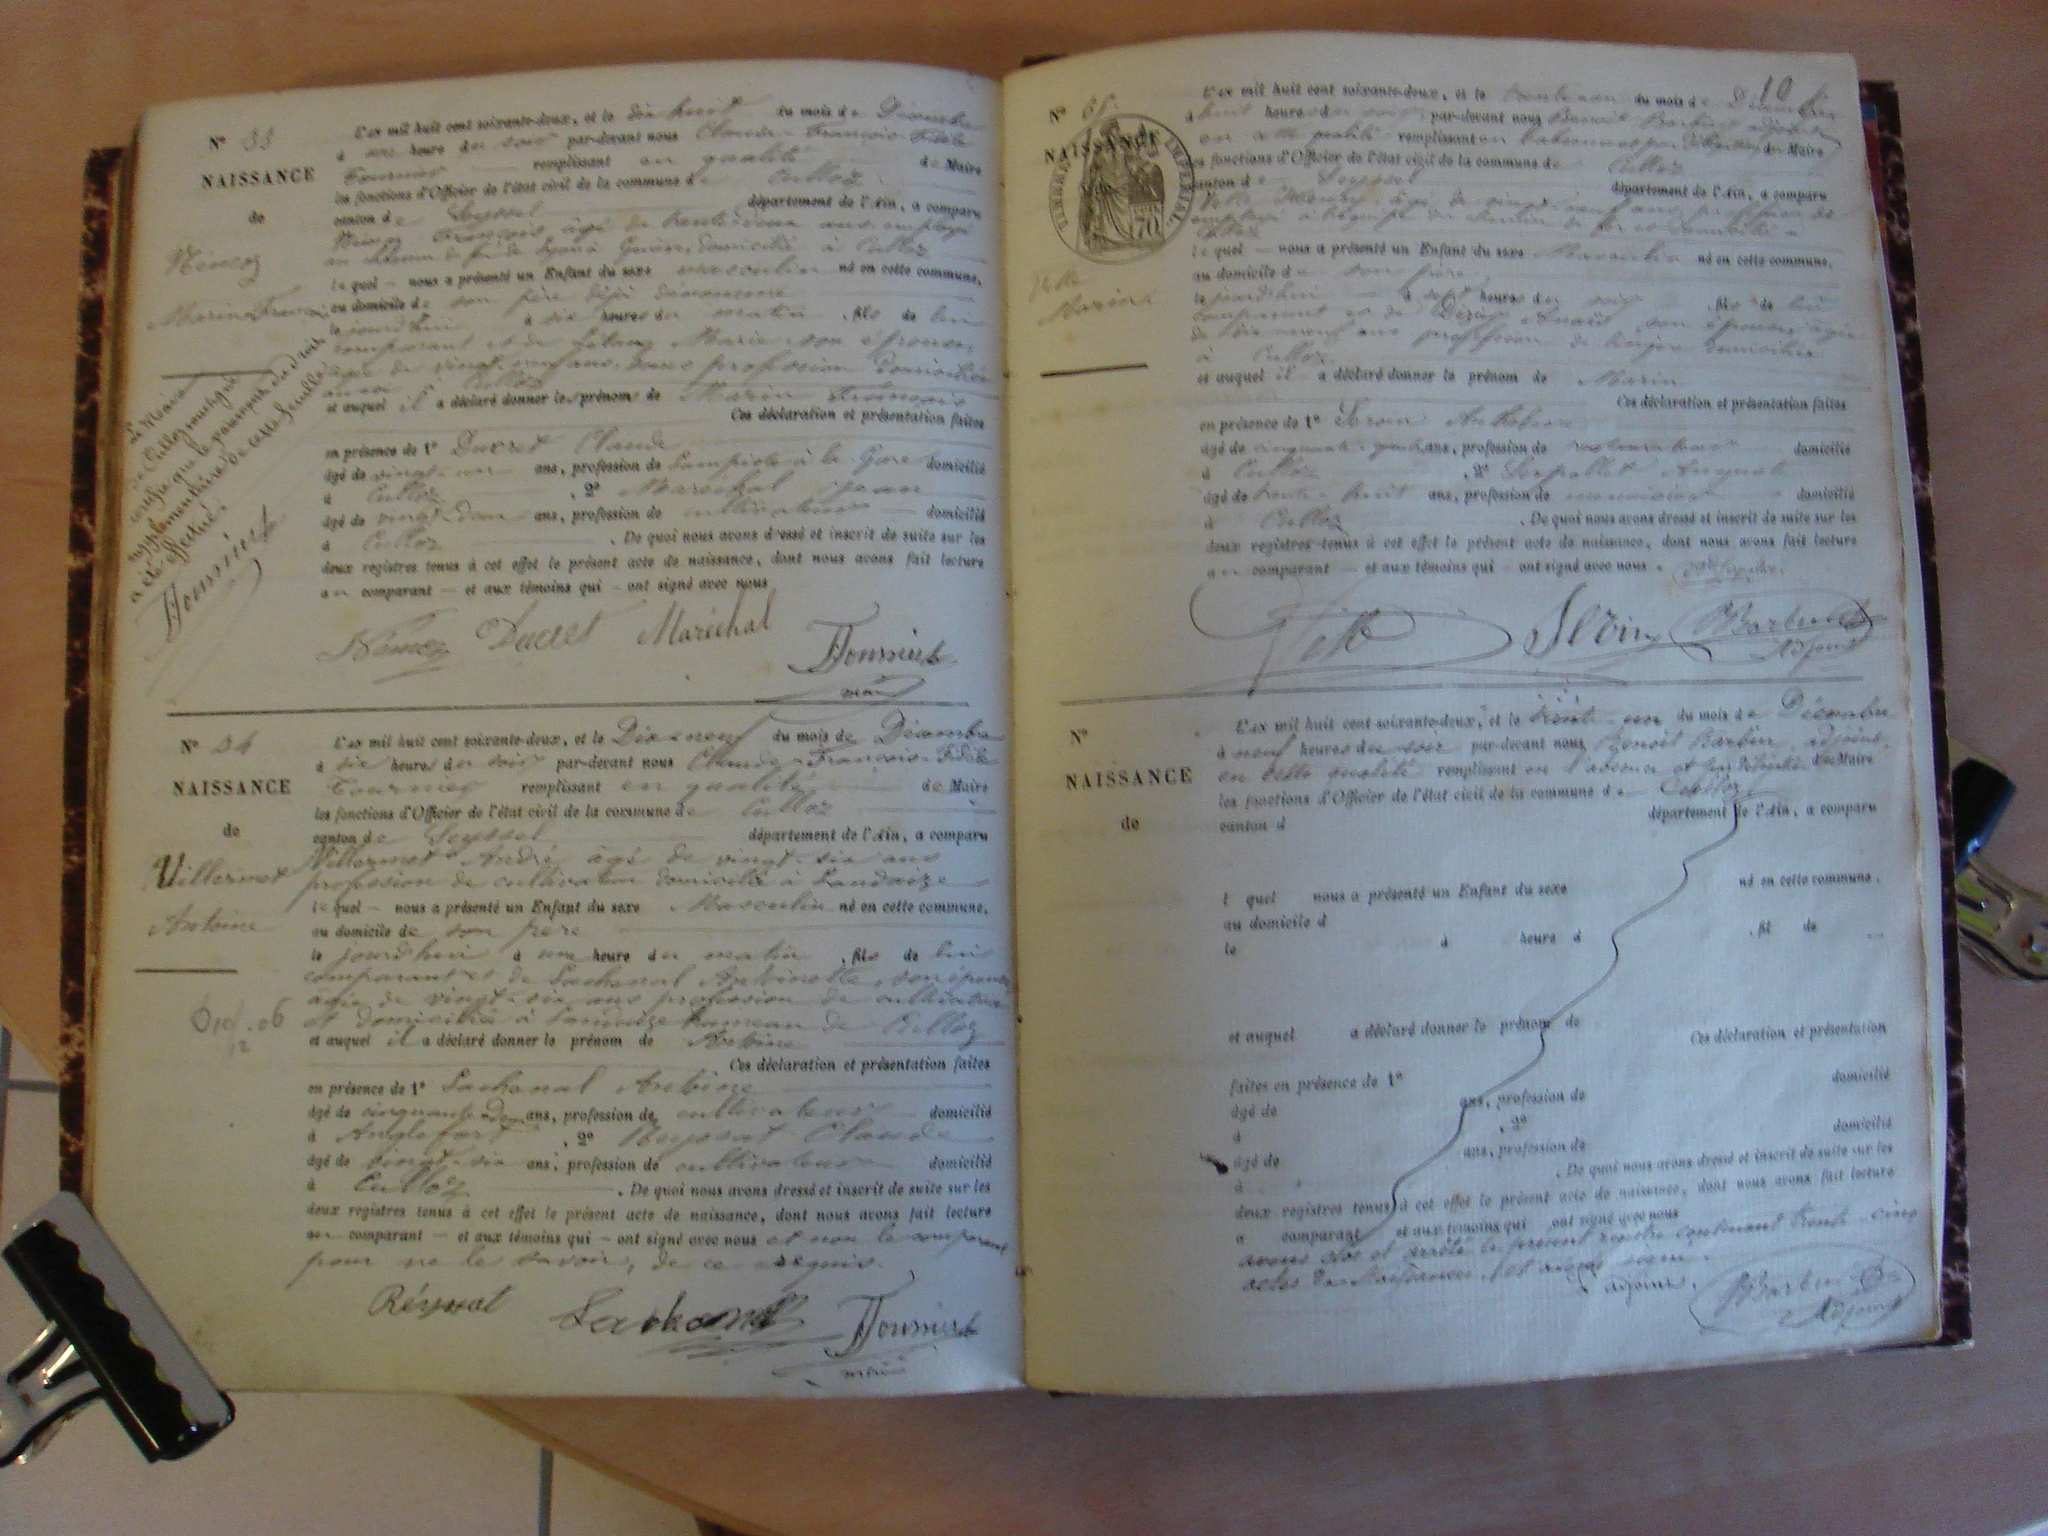 N° 33
NAISSANCE
de
Némoz
Marin François
L'an mil huit cent soixante-deux, et le dix huit du mois de Décembre
à une heure du soir par-devant nous Claude-François-Fidèle
Fournier remplissant en qualité de Maire
les fonctions d'Officier de l'état civil de la commune de Culloz
canton de Seyssel département de l'Ain, a comparu
Némoz François âgé de trente-deux ans employé
au chemin de fer de Lyon à Genève, domicilié à Culloz
lequel nous a présenté un Enfant du sexe masculin né en cette commune,
au domicile de son père déjà dénommé
le jourd'hui à six heures du matin, fils de lui
comparant et de Marie son épouse,
âgée de vingt ans, sans profession domiciliée
aussi à Culloz
et auquel il a déclaré donner les prénoms de Marin François
Ces déclaration et présentation faites
en présence de 1° Ducret Claude
âgé de vingt-un ans, profession de Lampiste à la Gare domicilié
à Culloz, 2° Maréchal Jean
âgé de vingt-deux ans, profession de cultivateur domicilié
à Culloz. De quoi nous avons dressé et inscrit de suite sur les
deux registres tenus à cet effet le présent acte de naissance, dont nous avons fait lecture
au comparant et aux témoins qui ont signé avec nous
Le Maire
de Culloz soussigné
certifie que le paiement du droit
supplémentaire de cette feuille
a été effectué.
Fournier
Némoz Ducret Maréchal
Fournier
maire
N° 34
NAISSANCE
de
Villermet
Antoine
L'an mil huit cent soixante-deux, et le Dix-neuf du mois de Décembre
à six heures du soir par-devant nous Claude-François-Fidèle
Fournier remplissant en qualité de Maire
les fonctions d'Officier de l'état civil de la commune de Culloz
canton de Seyssel département de l'Ain, a comparu
Villermet André âgé de vingt-six ans
profession de cultivateur domicilié à Landaize
lequel nous a présenté un Enfant du sexe Masculin né en cette commune,
au domicile de son père
le jourd'hui à une heure du matin, fils de lui
comparant et de Lachenal Antoinette, son épouse
âgée de vingt-six ans profession de cultivateur
et domiciliée à Landaize hameau de Culloz
et auquel il a déclaré donner le prénom de Antoine
Ces déclaration et présentation faites
en présence de 1° Lachenal
âgé de cinquante-deux ans, profession de cultivateur domicilié
à Anglefort, 2° Claude
âgé de vingt-six ans, profession de cultivateur domicilié
à Culloz. De quoi nous avons dressé et inscrit de suite sur les
deux registres tenus à cet effet le présent acte de naissance, dont nous avons fait lecture
au comparant et aux témoins qui ont signé avec nous et non le comparant
pour ne le savoir, de ce requis.
Lachenal Fournier
maire
10
N° 35
NAISSANCE
TIMBRE IMPERIAL
Marin
L'an mil huit cent soixante-deux, et le trente-un du mois de Décembre
à huit heures du soir par-devant nous Benoit Barbin adjoint
remplissant en l'absence et par délégation du Maire
les fonctions d'Officier de l'état civil de la commune de Culloz
canton de Seyssel département de l'Ain, a comparu
âgé de vingt-neuf ans profession de
chemin de fer et domicilié à
Culloz
lequel nous a présenté un Enfant du sexe Masculin né en cette commune,
au domicile de son père
le jourd'hui à sept heures du soir, fils de lui
comparant et de son épouse, âgée
de dix neuf ans profession de lingère domiciliée
à Culloz
et auquel il a déclaré donner le prénom de Marin
Ces déclaration et présentation faites
en présence de 1°
âgé de cinquante ans, profession de domicilié
à Culloz, 2° Serpollet
âgé de trente-huit ans, profession de menuisier domicilié
à Culloz. De quoi nous avons dressé et inscrit de suite sur les
deux registres tenus à cet effet le présent acte de naissance, dont nous avons fait lecture
au comparant et aux témoins qui ont signé avec nous.
Barbin
Adjoint
N°
NAISSANCE
de
L'an mil huit cent soixante-deux, et le trente-un du mois de Décembre
à neuf heures du soir par-devant nous Benoit Barbin, adjoint,
en cette qualité remplissant en l'absence et par délégation du Maire
les fonctions d'Officier de l'état civil de la commune de Culloz
canton d département de l'Ain, a comparu
l quel nous a présenté un Enfant du sexe né en cette commune.
au domicile d
le à heure d , fil de
et auquel a déclaré donner le prénom de
Ces déclaration et présentation
faites en présence de 1° domicilié
âgé de ans, profession de
à , 2° domicilié
âgé de ans, profession de
à . De quoi nous avons dressé et inscrit de suite sur les
deux registres tenus à cet effet le présent acte de naissance, dont nous avons fait lecture
a comparant et aux témoins qui ont signé avec nous
avons clos et arrêté le présent registre contenant trente-cinq
actes de Naissances, et avons signé.
L'adjoint, Barbin
Adjoint